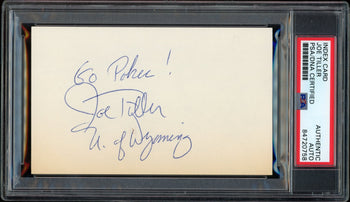 Go Pokes!
Joe Tiller
U. of Wyoming
INDEX CARD
JOE TILLER
PSA/DNA CERTIFIED
PSA
AUTHENTIC
AUTO
84720758